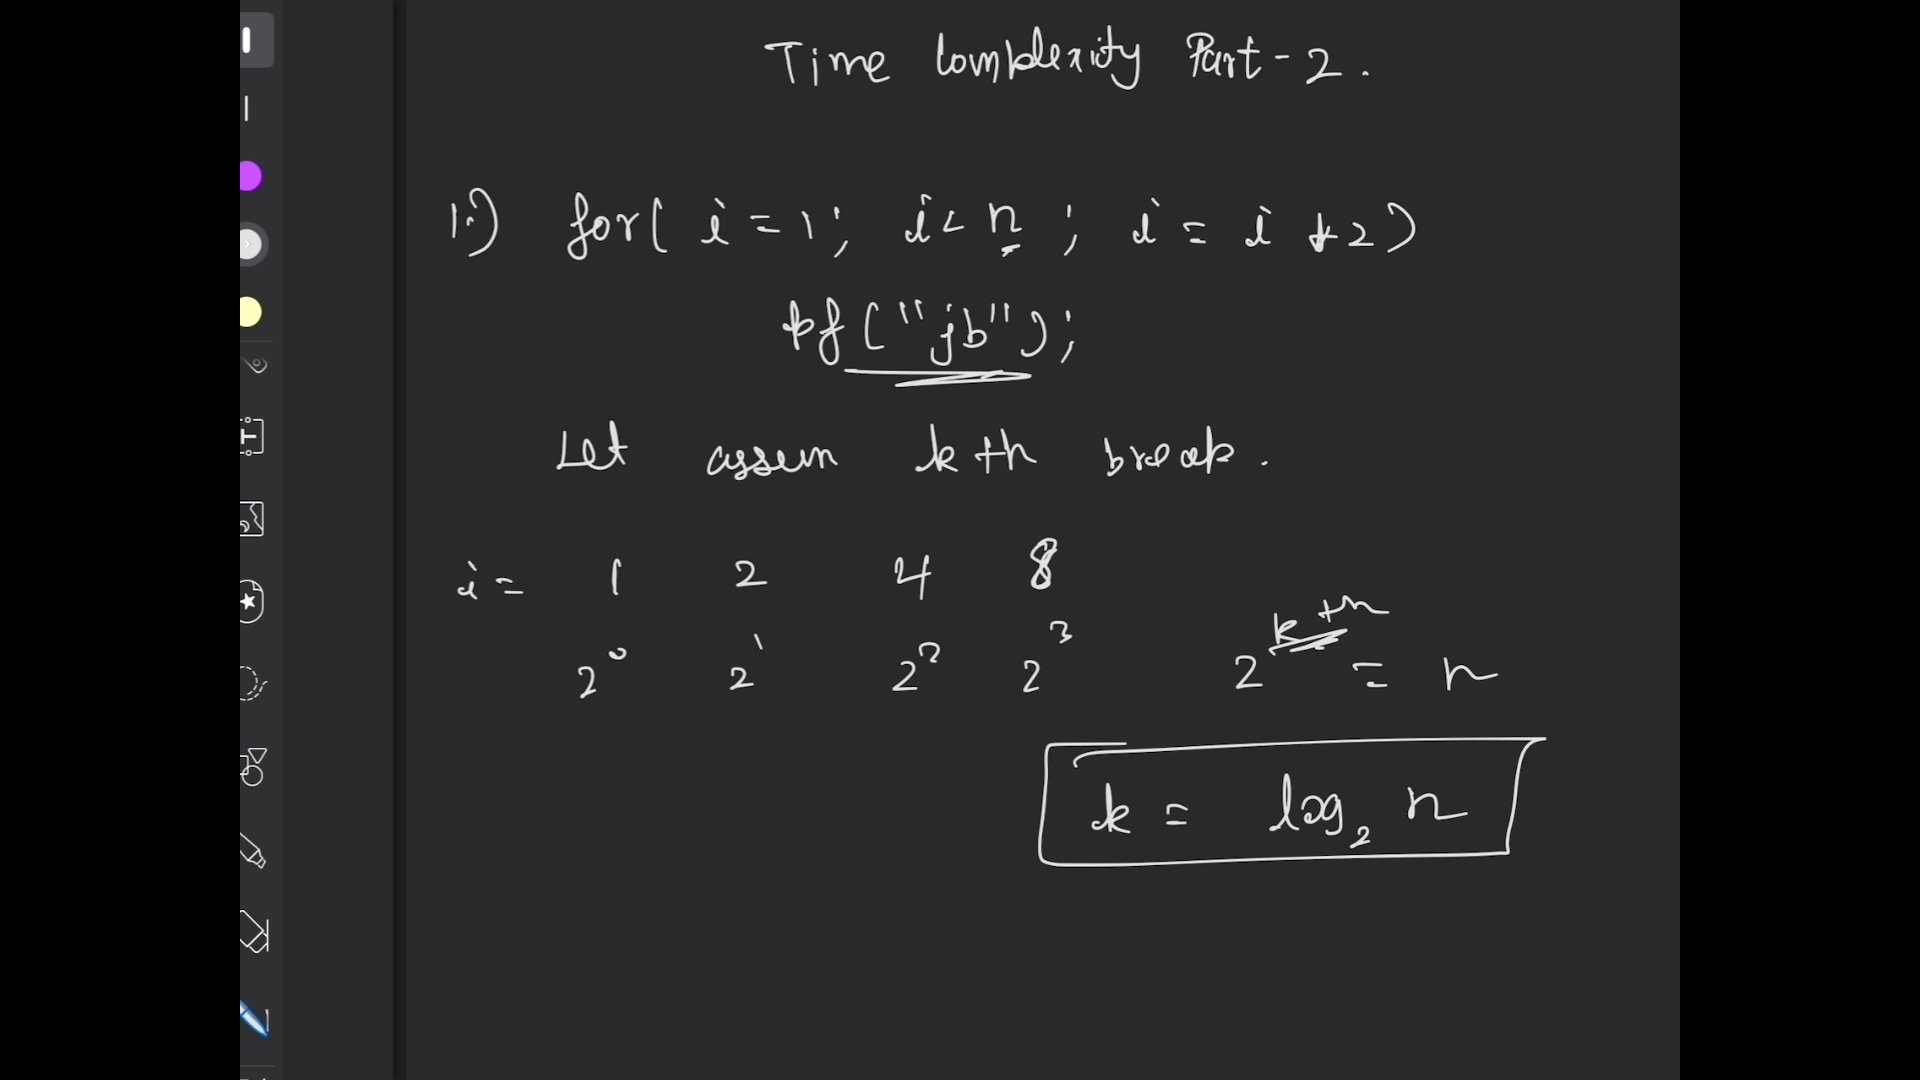 Time Complexity Part-2.
1.) for( i = 1; i < n ; i = i * 2)
pf("jb");
Let assum k th break.
i = 1 2 4 8
2^0 2^1 2^2 2^3 2^k th = n
k = log_2 n